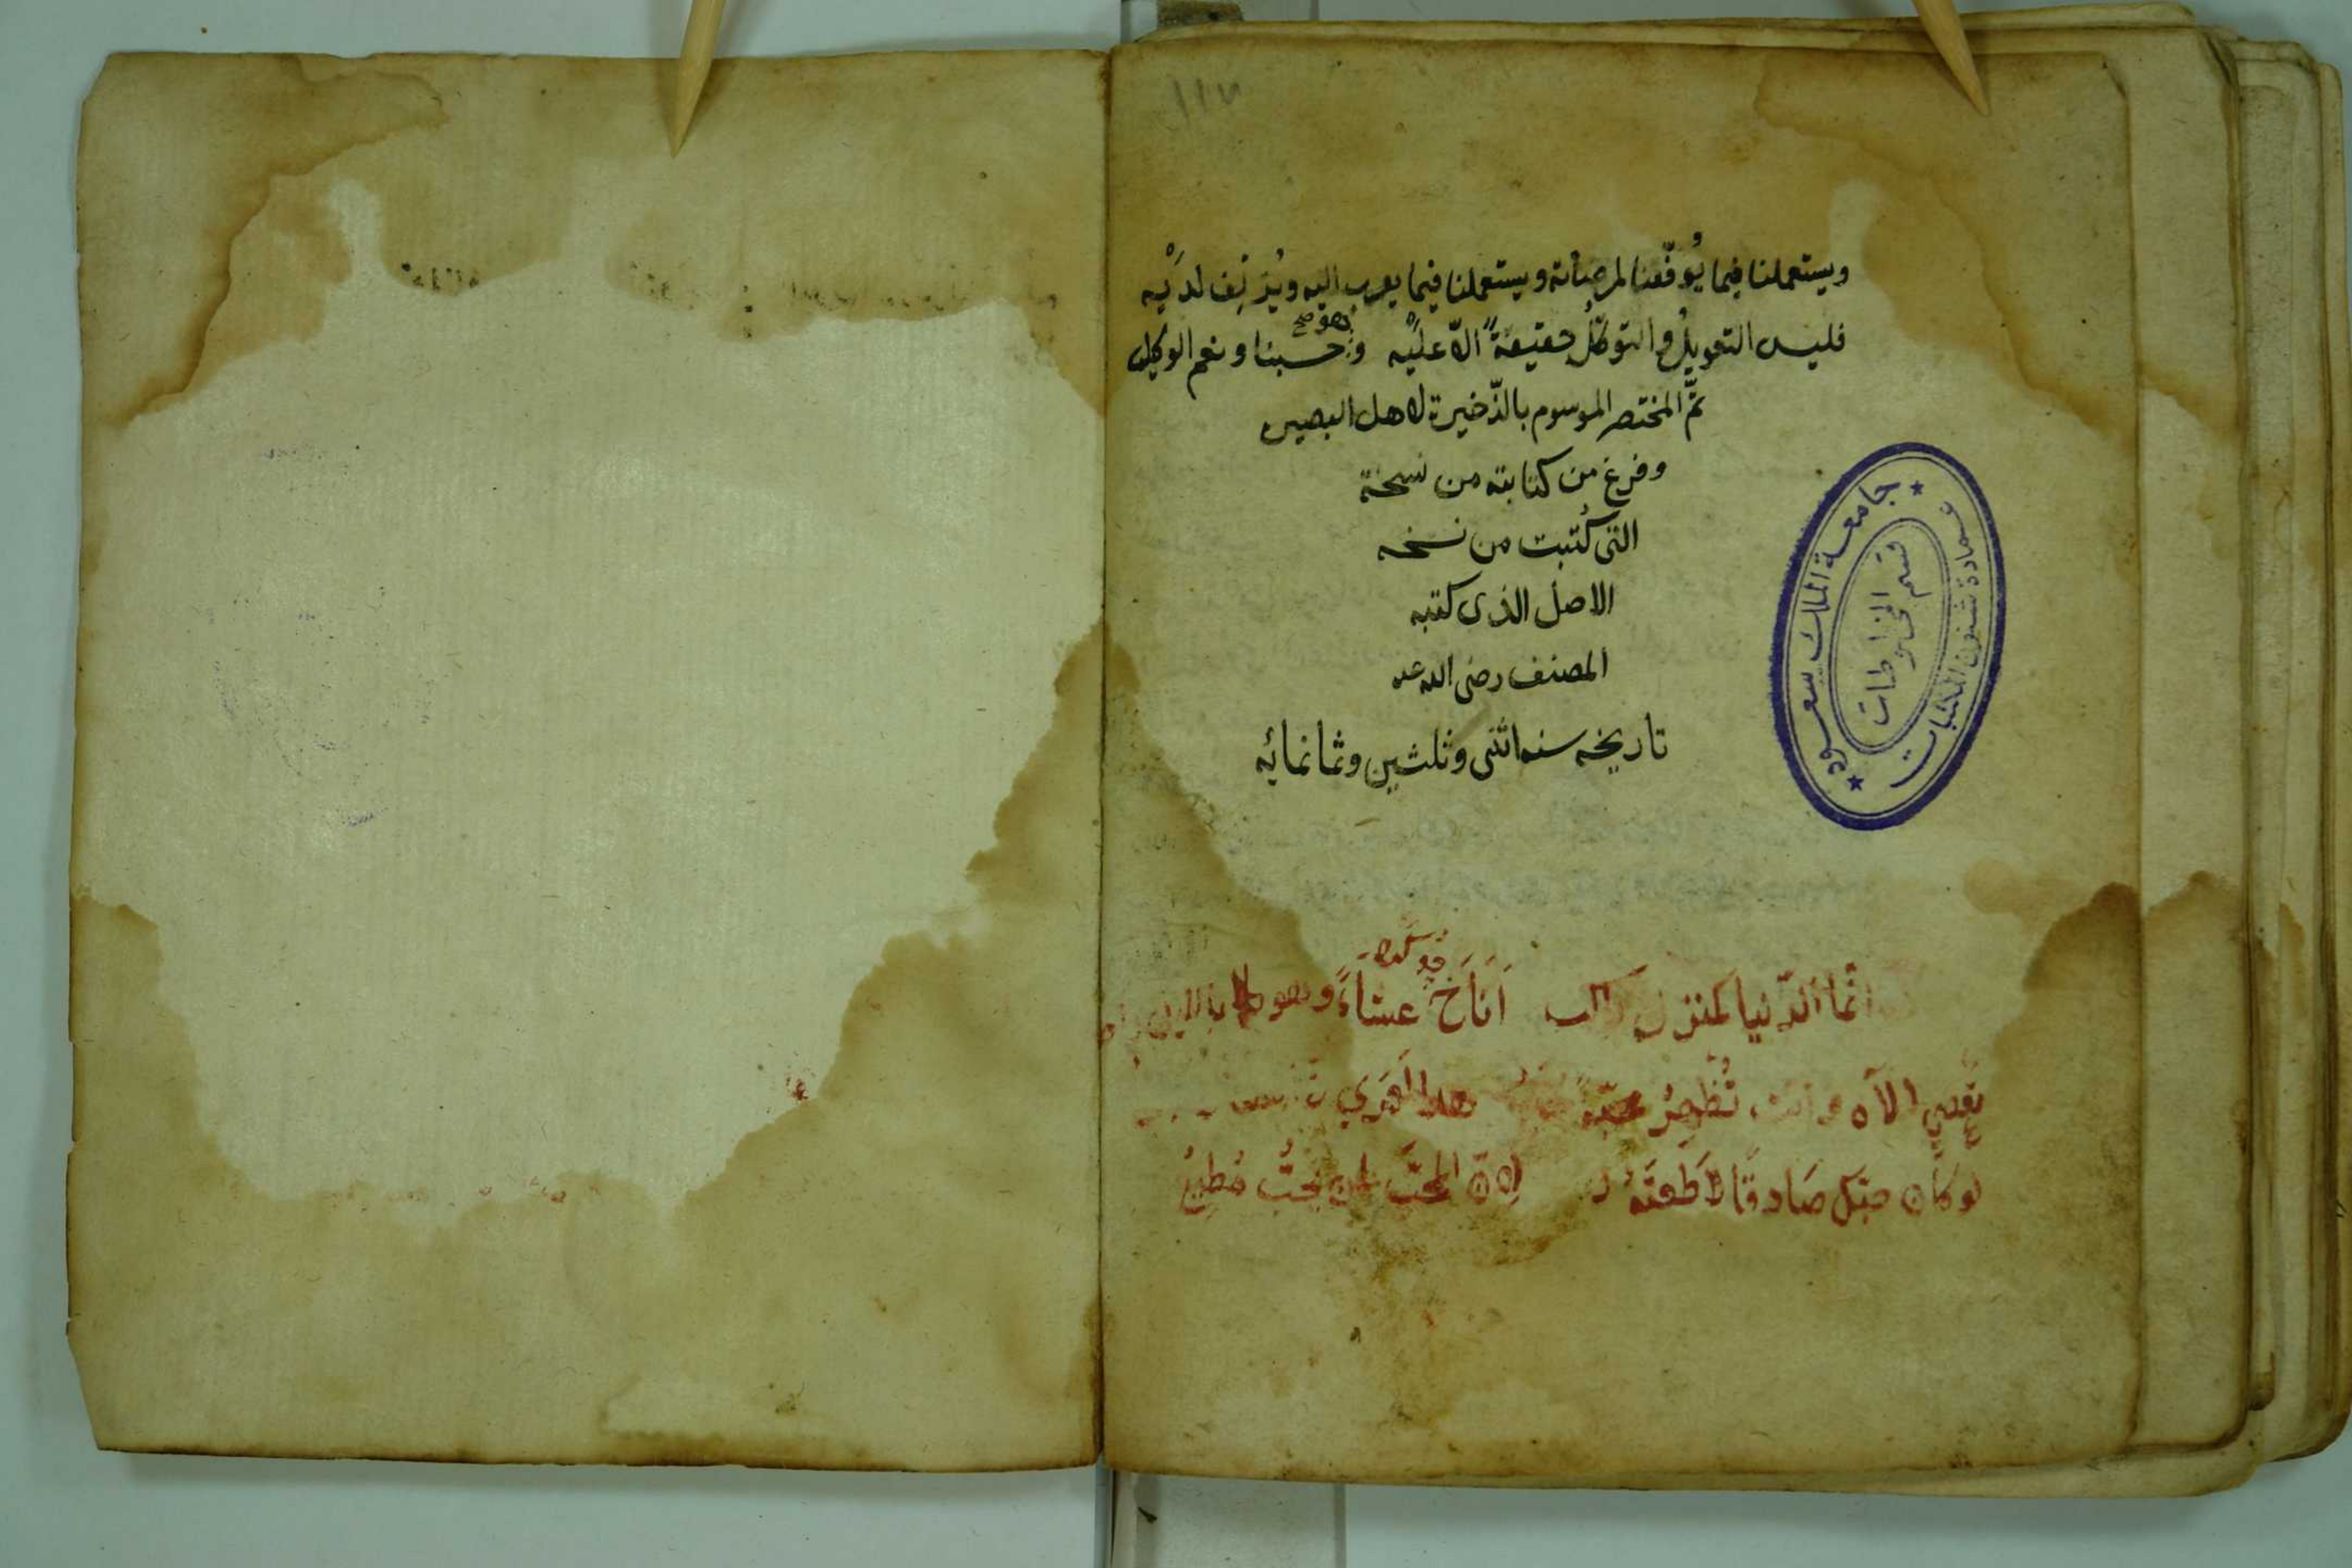 ١١٧
ويستعملنا فيما يُوفّقنا لمرضاته ويستعملنا فيما يقرب اليه ويُزلِف لَدَيْه
فليس التعويلُ والتوكّلُ حقيقةً الّا عليْه وهو صح حسبنا ونعم الوكيل
تمَّ المختصر الموسوم بالذّخيرة لاهل البصيرة
وفرغ من كتابته من نسخة
التى كُتبت من نسخه
الاصل الذى كتبه
المصنف رضى الله عنه
تاريخه سنه اثنى وثلثين وثمانمائه
جامعة الملك سعود
عمادة شئون المكتبات
قسم المخطوطات
انّما الدّنيا كمنزل راكب اَنَاخَ عشاءً وهو
تعصي الآلاه وانت تُظْهِرُ هذا لعمري
لو كان حبّك صَادقًا لاَطَعتَهُ اِنّ المحبَّ لمن يحبُّ مُطِيعُ